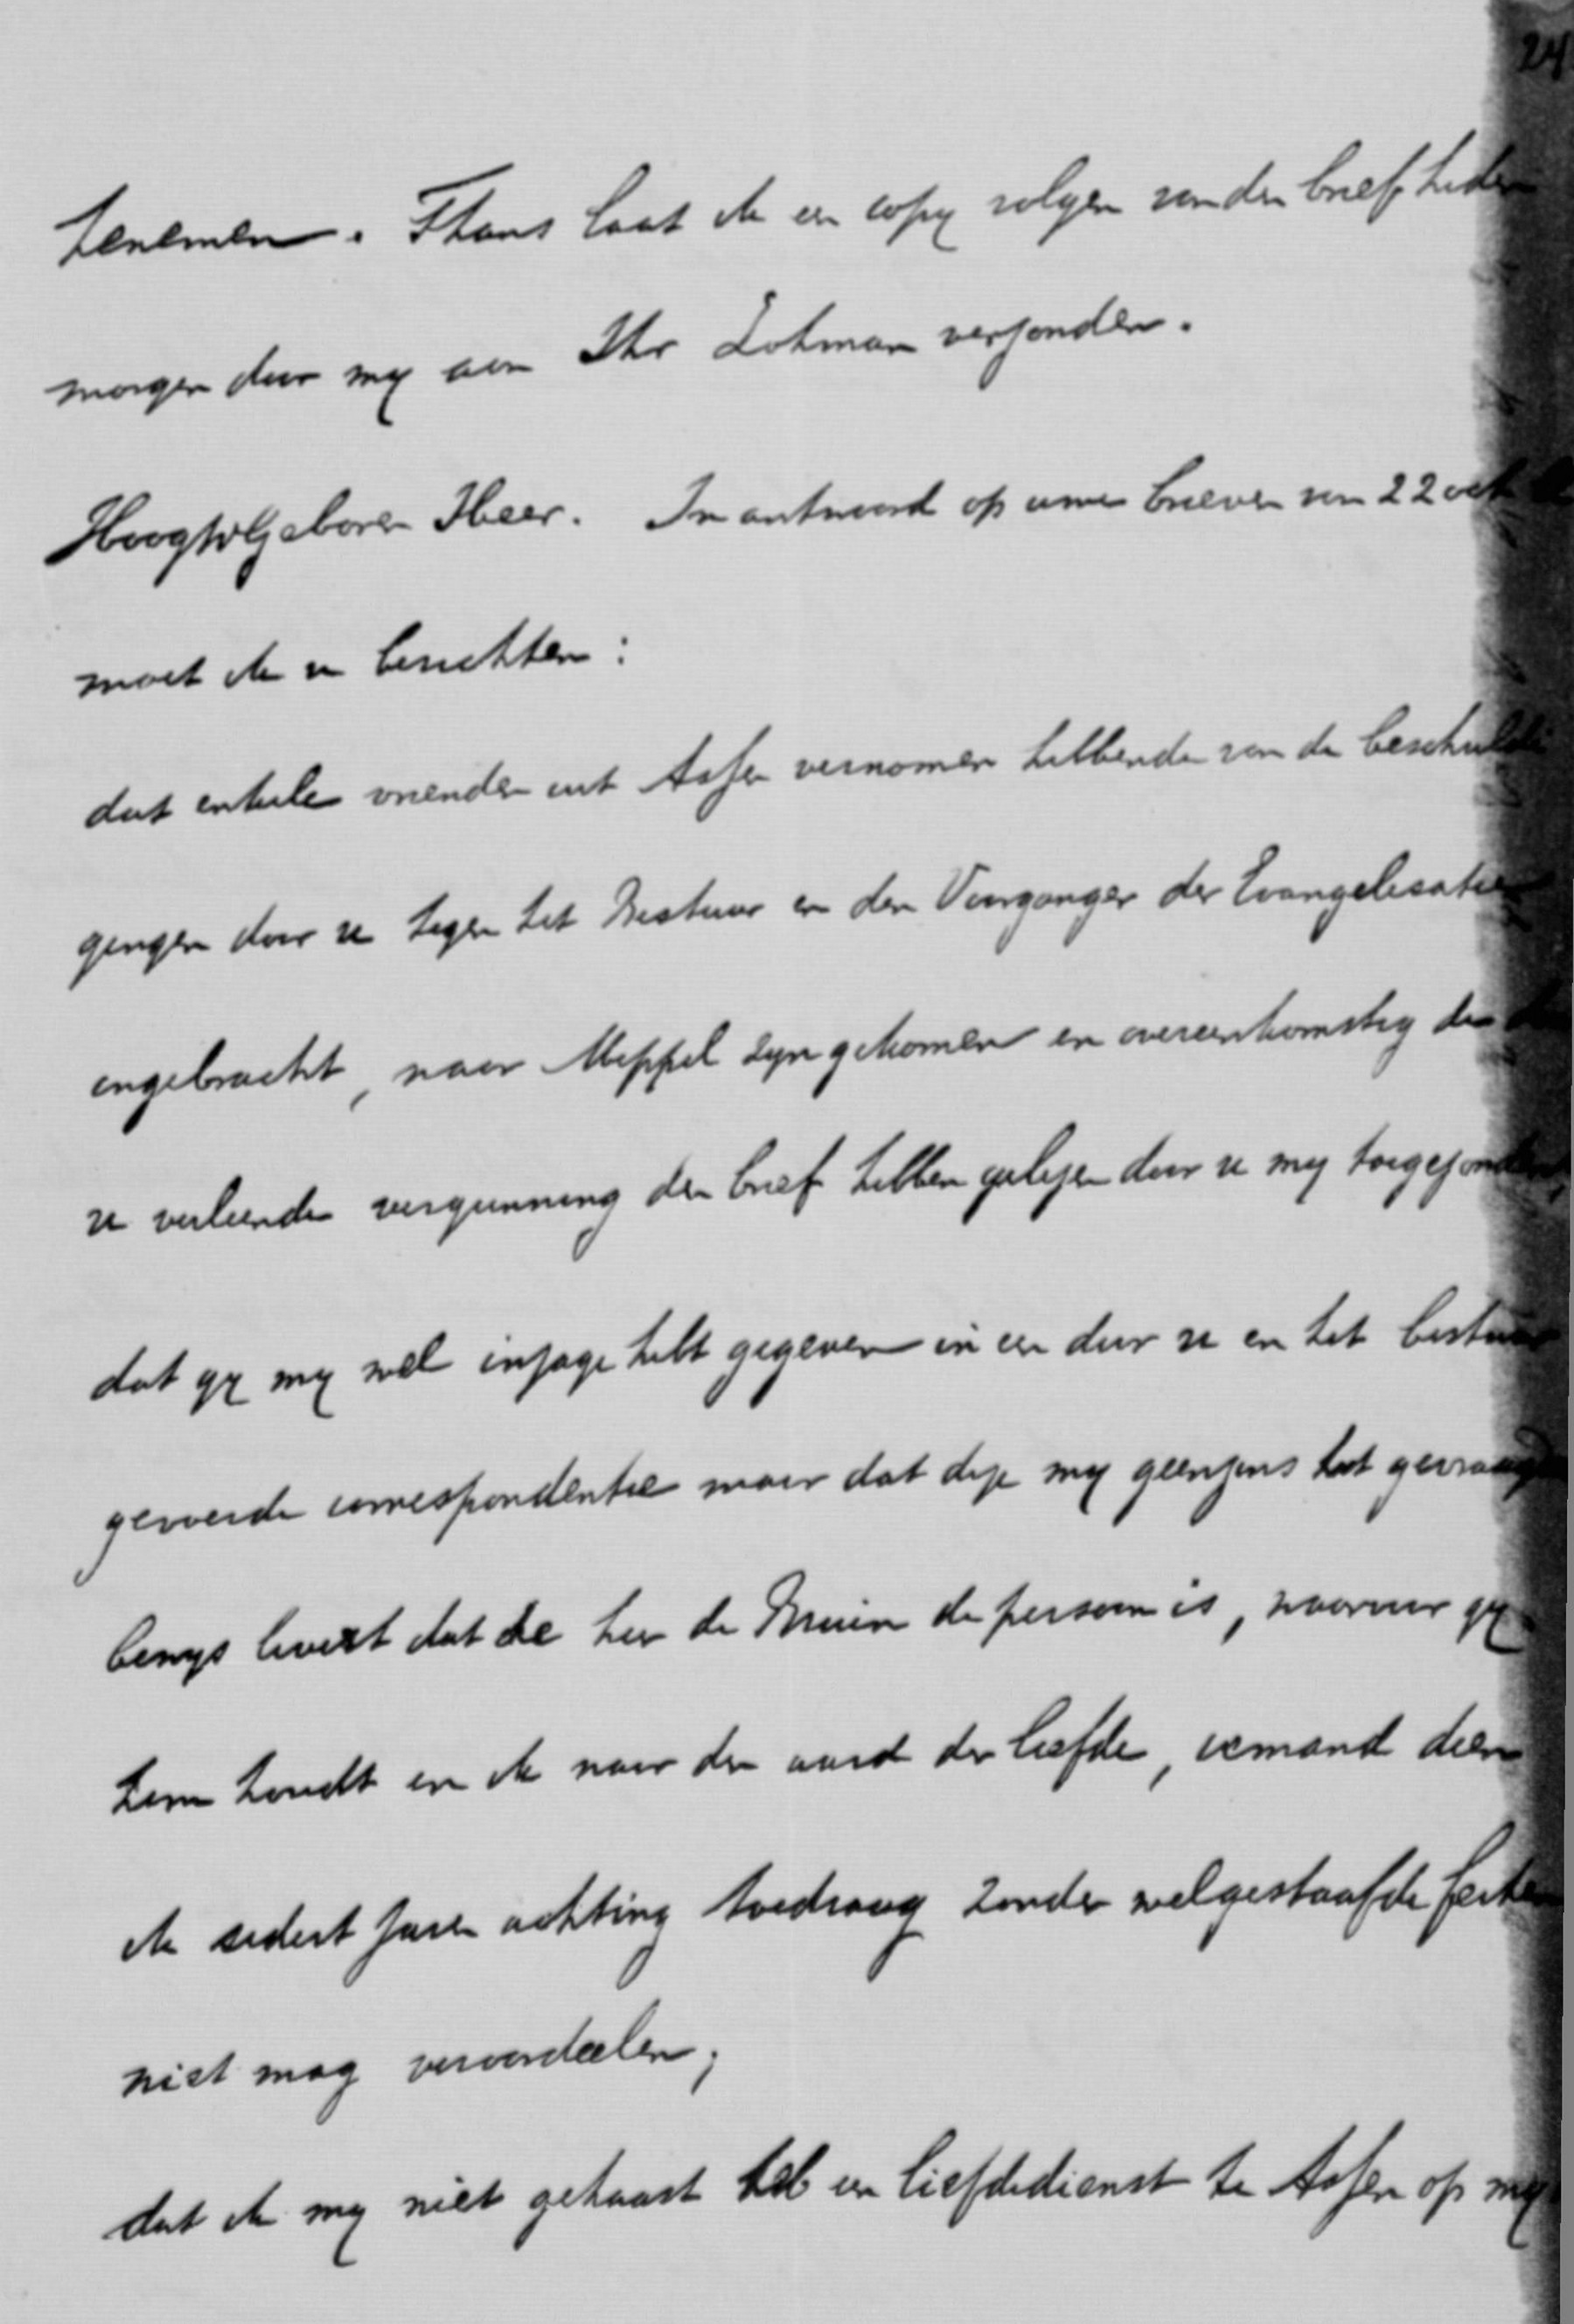 24
henemen. Thans laat ik een copy volgen van den brief heden
morgen door my aan Jhr Lohman verzonden.
HoogWelGeboren Heer. In antwoord op uwe brieven van 22 oct
moet ik u berichten:
dat enkele vrienden uit Assen vernomen hebbende van de beschuldi
gingen door u tegen het Bestuur en den Voorganger der Evangelisatie
ingebracht, naar Meppel zyn gekomen en overeenkomstig de
u verleende vergunning den brief hebben gelezen door u my toegezonden,
dat gy my wel inzage hebt gegeven in een door u en het bestuur
gevoerde correspondentie maar dat deze my geenszins het gevraagd
bewys levert dat de heer de Bruin de persoon is, waarvoor gy
hem houdt en ik naar den aard der liefde, iemand dien
ik sedert jaren achting toedroeg zonder welgestaafde feiten
niet mag veroordeelen;
dat ik my niet gehaast heb een liefdedienst te Assen op my